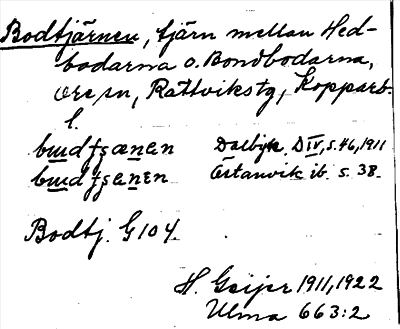 Bodtjärnen, tjärn mellan Hed-
bodarna o. Bondbodarna,
Ore sn, Rättvikstg, Kopparb.
l.
Dalbyk. D IV, s. 46, 1911
Östanvik ib. s. 38.
Bodtj. G 104.
H. Geijer 1911, 1922
Ulma 663:2